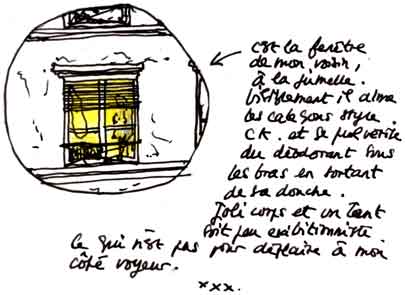 c'est la fenêtre
de mon voisin,
à la jumelle.
Visiblement il aime
les caleçons style
CK. et se pulvérise
du déodorant sous
les bras en sortant
de sa douche.
Joli corps et un tant
soit peu exibitionniste
ce qui n'est pas pour déplaire à mon
côté voyeur.
xxx.